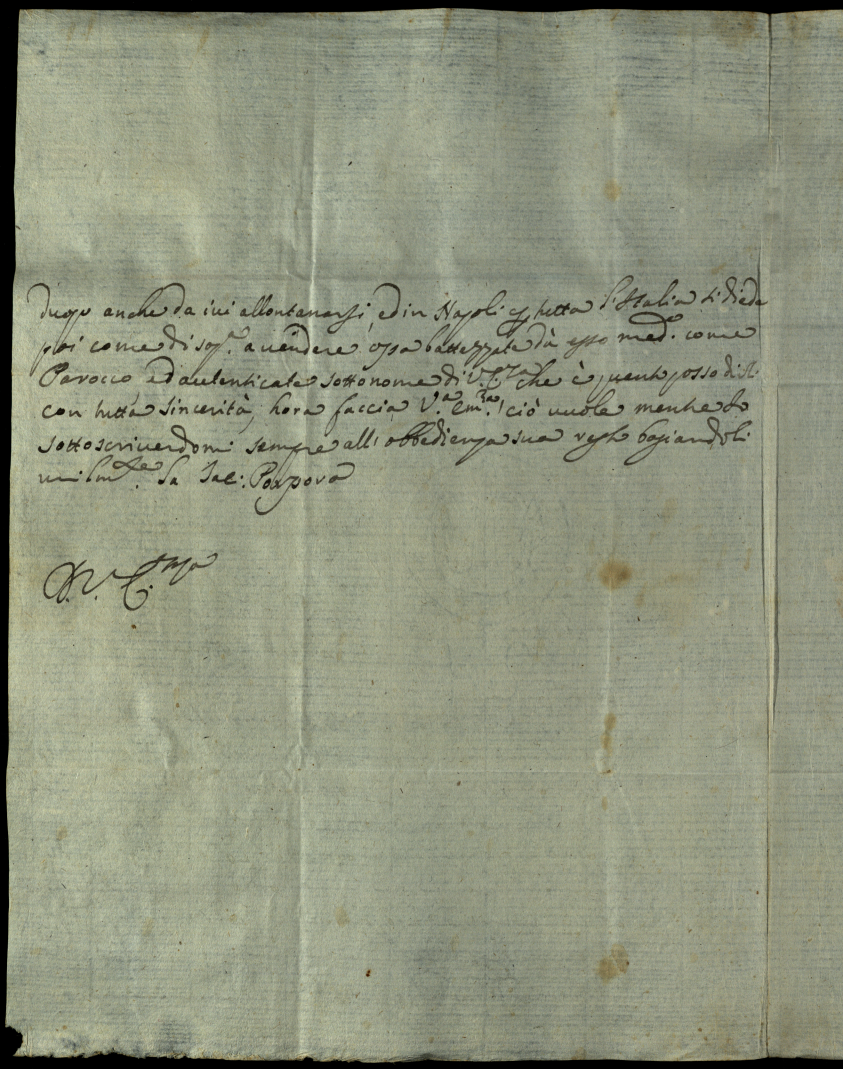 anche da ivi allontanarsi, ed in Napoli e p tutta l'Italia si diede
poi come di sop.ª a vendere ossa battezzate dà esso med.º come
Parocco, ed autenticate sotto nome di V. E.za che è quento posso dirli
con tutta sincerità, hora faccia V.ª Em.za ciò vuole mentre Io
sottoscrivendomi sempre all' obbedienza sua resto bagiandoli
umilm.te la Sac: Porpora
D. V. E.mza